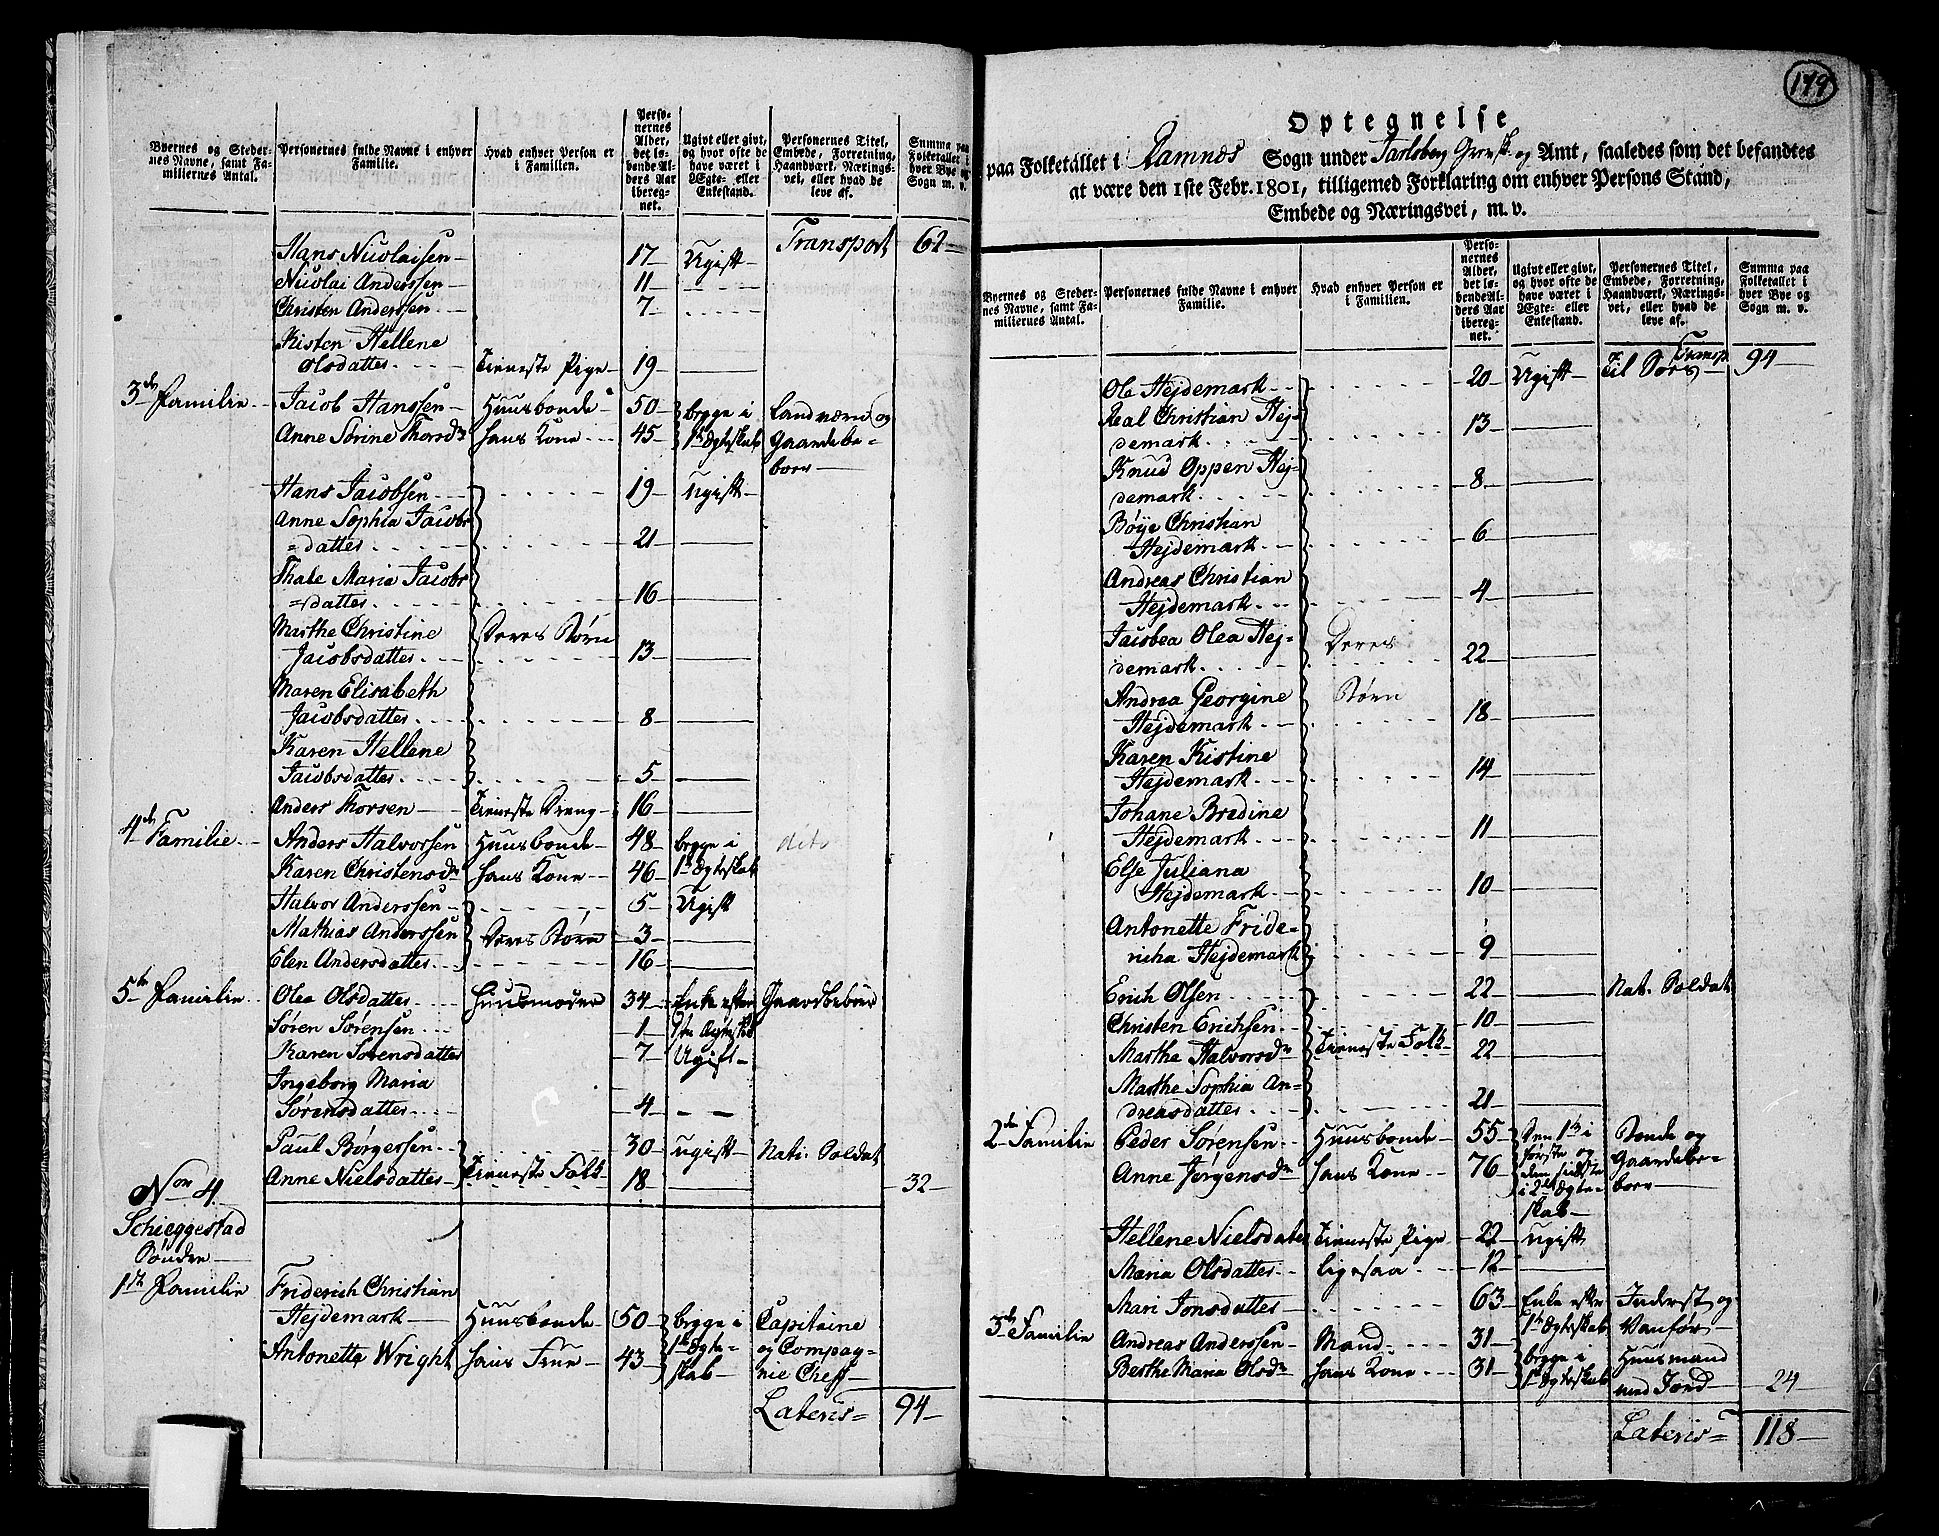 Byernes og Steder-
nes Navne, samt Fa-
miliernes Antal.
Personernes fulde Navne i enhver
Familie.
Hvad enhver Person er
i Familien.
Perso-
nernes
Alder,
det lø-
bende Al-
ders Aar
ibereg-
net.
Ugivt eller givt,
og hvor ofte de
have været i
Ægte- eller
Enkestand.
Personernes Titel,
Embede, Forretning,
Haandværk, Nærings-
vei, eller hvad de
leve af.
Summa paa
Folketallet i
hver Bye og
Sogn m. v.
Transport 62
Hans Nicolaisen 17 Ugift
Nicolai Anderssen 11
Christen Anderssen 7
Kisten Hellene
Olsdatter Tieneste Pige 19
3de Familie Jacob Hanssen Huusbonde 50 begge i Landværn og
Anne Sørine Thorsdr hans Kone 45 1te Ægteskab Gaardebe-
boer
Hans Jacobsen 19 Ugift
Anne Sophia Jacobs
=datter 21
Thale Maria Jacobs
=datter 16
Marthe Christine Deres Børn
Jacobsdatter 13
Maren Elisabeth
Jacobsdatter 8
Karen Hellene
Jacobsdatter 5
Anders Thorsen Tieneste Dreng 16
4de Familie Anders Halvorsen Huusbonde 48 begge i dito
Karen Christensdr hans Kone 46 1te Ægteskab
Halvor Anderssen 5 Ugift
Mathias Anderssen Deres Børn 3
Elen Andersdatter 16
5te Familie Olea Olsdatter Huusmoder 34 Enke efter Gaardbeboer
Søren Sørensen 1 1te Ægteskab
Karen Sørensdatter 7 Ugift
Ingeborg Maria
Sørensdatter 4
Paul Børgersen 30 ugift Nati. Soldat
Anne Nielsdatter Tieneste Folk 18 32
Nor 4
Schieggestad
Søndre
1te Familie Friderich Christian
Hejdemark Huusbonde 50 begge i Capitaine
Antonette Wright hans Frue 43 1te Ægte- og Compag-
skab nie Cheff
Lateris 94
179
Optegnelse
paa Folketallet i Ramnæs Sogn under Jarlsberg Grevsk. og Amt, saaledes som det befandtes
at være den 1ste Febr. 1801, tilligemed Forklaring om enhver Persons Stand,
Embede og Næringsvei, m. v.
Byernes og Steder-
nes Navne, samt Fa-
miliernes Antal.
Personernes fulde Navne i enhver
Familie.
Hvad enhver Person er
i Familien.
Perso-
nernes
Alder,
det lø-
bende Al-
ders Aar
ibereg-
net.
Ugivt eller givt,
og hvor ofte de
have været i
Ægte- eller
Enkestand.
Personernes Titel,
Embede, Forretning,
Haandværk, Nærings-
vei, eller hvad de
leve af.
Summa paa
Folketallet i
hver Bye og
Sogn m. v.
Transp. 94
Ole Hejdemark 20 Ugift Til Søes
Real Christian Hej-
demark 13
Knud Oppen Hej-
demark 8
Bøye Christian
Hejdemark 6
Andreas Christian
Hejdemark 4
Jacobea Olea Hej- Deres
demark 22
Andrea Georgine Børn
Hejdemark 18
Karen Kistine
Hejdemark 14
Johane Bredine
Hejdemark 11
Else Juliana
Hejdemark 10
Antonette Fride-
richa Hejdemark 9
Erich Olsen 22 Nati. Soldat
Christen Erichsen 10
Marthe Halvorsdr Tieneste Folk 22
Marthe Sophia An-
dreasdatter 21
2de Familie Peder Sørensen Huusbonde 55 Den 1te i Bonde og
Anne Jørgensdr hans Kone 76 første og Gaardebe-
den sidste boer
i 2det Ægte-
skab
Hellene Nielsdater Tieneste Pige 22 ugift
Maria Olsdatter ligesaa 12
Mari Jonsdatter 63 Enke efter Inderst og
1te Ægteskab Vanfør
3de Familie Andreas Anderssen Mand 31 begge i Huusmand
Berthe Maria Olsdr hans Kone 31 1te Ægteskab med Jord 24
Lateris 118